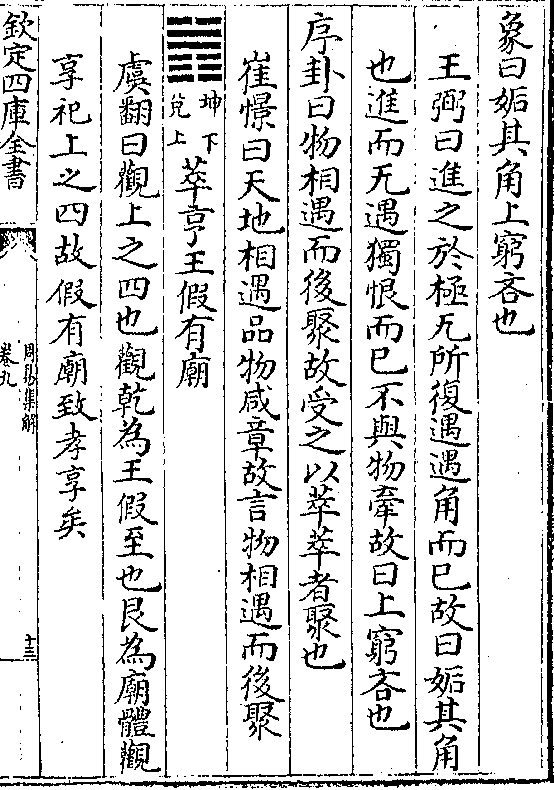 象曰姤其角上窮吝也
王弼曰進之於極无所復遇遇角而已故曰姤其角
也進而无遇獨恨而已不與物牽故曰上窮吝也
序卦曰物相遇而後聚故受之以萃萃者聚也
崔憬曰天地相遇品物咸章故言物相遇而後聚
坤下
兌上
萃亨王假有廟
虞翻曰觀上之四也觀乾為王假至也艮為廟體觀
享祀上之四故假有廟致孝享矣
欽定四庫全書
周易集解
卷九
十三